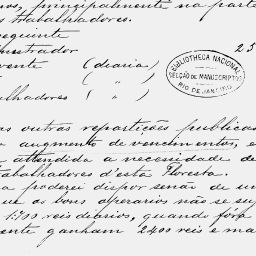 principalmente na parte
trabalhadores.
seguinte
25
vente (diaria)
BIBLIOTHECA NACIONAL
SECÇÃO DE MANUSCRIPTOS
RIO DE JANEIRO
( " )
alhadores ( " )
as outras repartições publicas
augmento de vencimentos, e
attendida a necessidade de
trabalhadores d'esta Floresta.
a poderei dispor senão de um
ue os bons operarios não se suj
1.700 reis diarios, quando fora
ente ganham 2.400 reis e ma